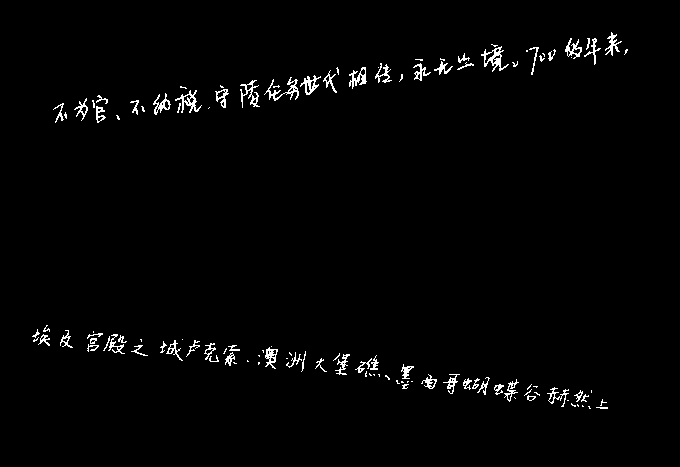 不为官、不纳税.守陵任务世代相传，永无止境。700多年来，
埃及宫殿之城卢克索、澳洲大堡礁、墨西哥蝴蝶谷赫然上